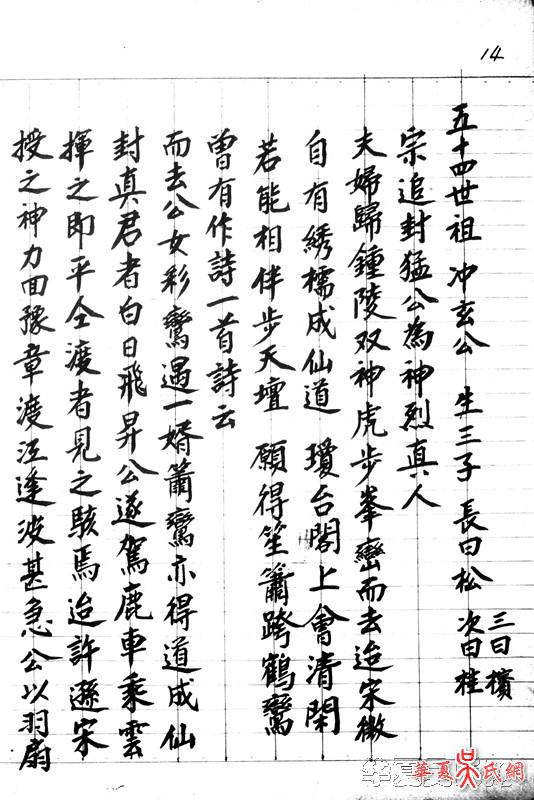 14
授之神力回豫章渡江逢波甚急公以羽扇
揮之即平仝渡者見之駭焉迨許遜宋
封真君者白日飛昇公遂駕鹿車乘雲
而去公女彩鸞遇一婿簫鸞亦得道成仙
曾有作詩一首詩云
若能相伴步天壇 願得笙簫跨鶴鸞
自有綉襦成仙道 瓊台閣上會清閑
夫婦歸鍾陵双神虎步峯巒而去迨宋徽
宗追封猛公為神烈真人
五十四世祖 冲玄公 生三子 長曰松 次曰桂
三曰檳
華夏吳氏網